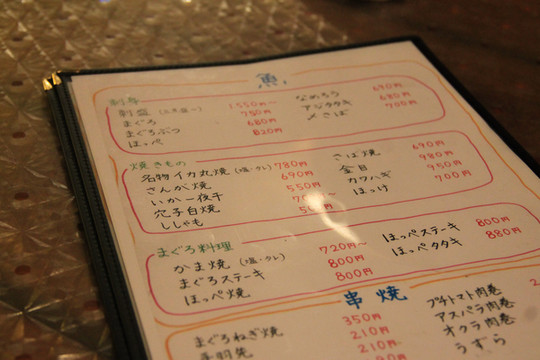 魚
刺身
刺盛(二点盛〜) 1,550円〜
まぐろ 750円
まぐろぶつ 680円
ほっぺ 820円
なめろう 690円
アジタタキ 680円
〆さば 700円
焼きもの
名物イカ丸焼(塩・タレ) 780円
さんが焼 690円
いか一夜干 550円
穴子白焼
ししゃも
さば焼 690円
金目 980円
カワハギ 950円
ほっけ 700円
まぐろ料理
かま焼(塩・タレ) 720円〜
まぐろステーキ 800円
ほっぺ焼 800円
ほっぺステーキ 800円
ほっぺタタキ 880円
串焼
まぐろねぎ焼 350円
手羽先 210円
210円
プチトマト肉巻
アスパラ肉巻
オクラ肉巻
うずら